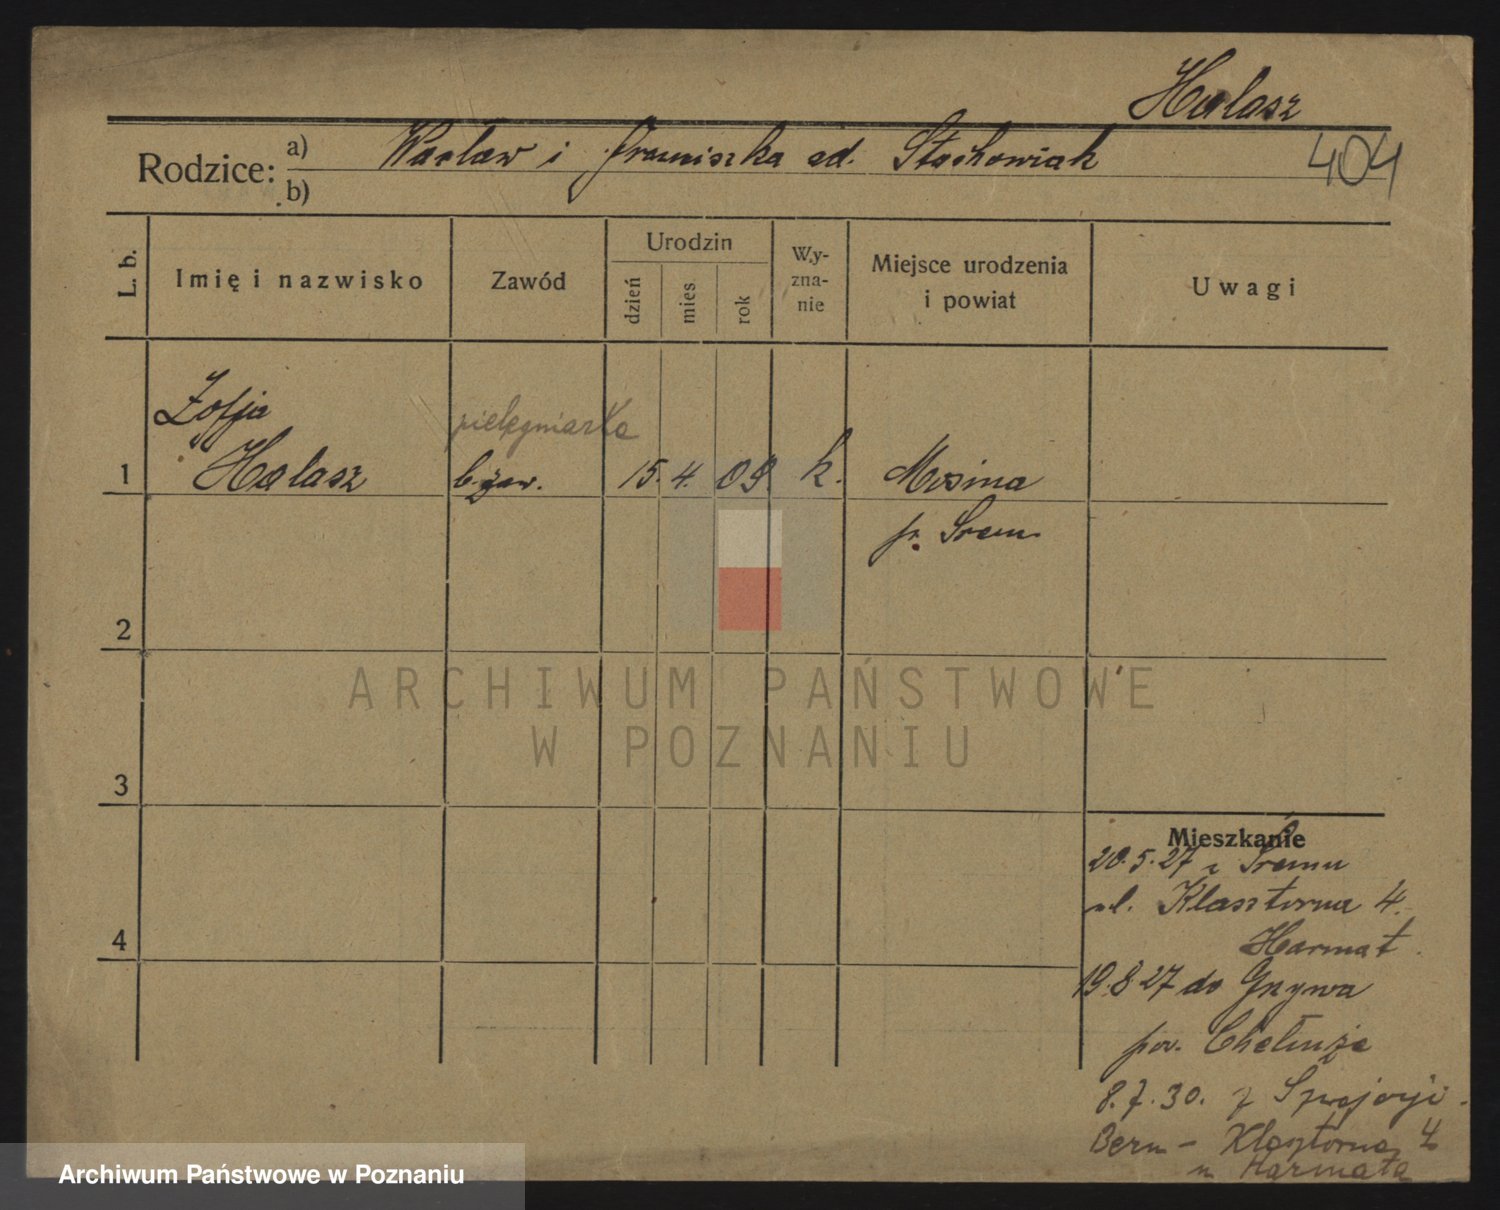 Halasz
Rodzice: a) Wacław i Franciszka od. Stachowiak
404
b)
L. b.
Imię i nazwisko
Zawód
Urodzin
dzień
mies
rok
Wy-
zna-
nie
Miejsce urodzenia
i powiat
Uwagi
Zofja
pielęgniarka
1 Halasz b.zaw. 15. 4. 09. k. Mosina
p. Srem
2
ARCHIWUM PAŃSTWOWE
W POZNANIU
3
Mieszkanie
20.5.27 z Śremu
ul. Klasztorna 4.
Harmat.
4
19.8.27 do
pow. Chełmża
8.7.30. z Szwajcarji.
Bern - Klasztorna 4
u Harmata
Archiwum Państwowe w Poznaniu